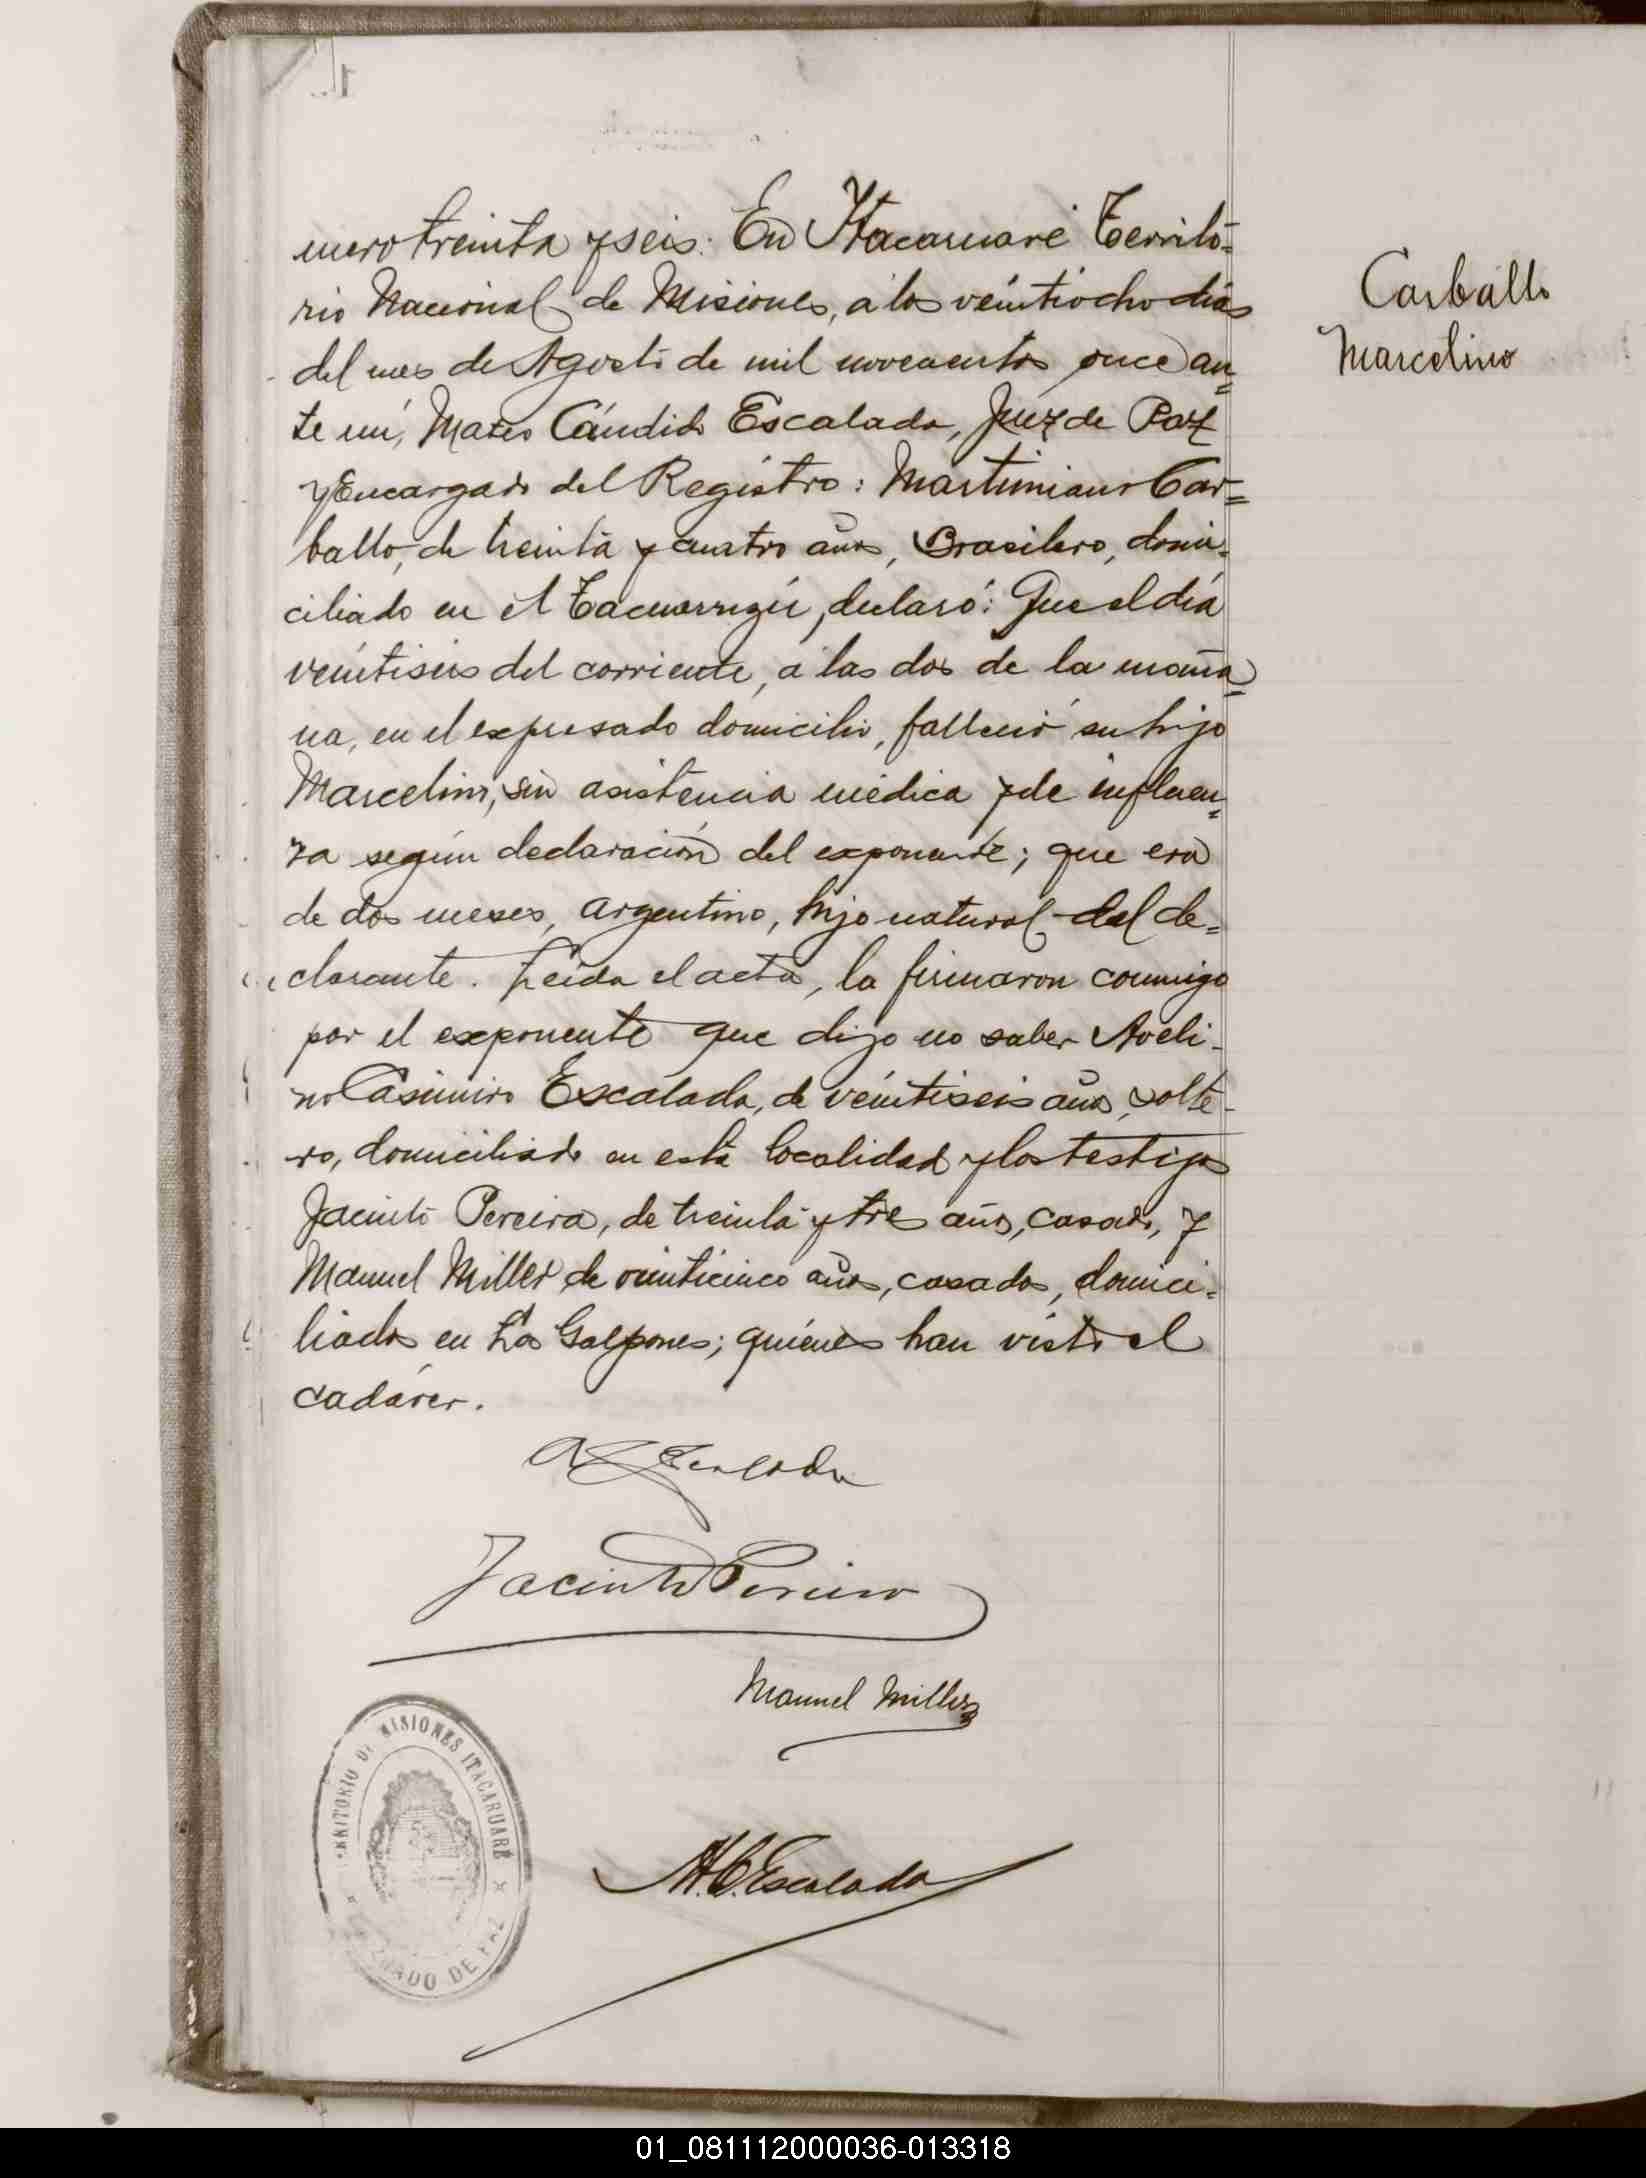 mero treinta y seis: En Itacaruaré Territo=
rio Nacional de Misiones, á los veintiocho dias
del mes de Agosto de mil novecientos once an=
te mí, Mateo Cándido Escalada, Juez de Paz
y Encargado del Registro: Martiniano Car=
ballo, de treinta y cuatro años, Brasilero, domi-
ciliado en el Tacuaruzú, declaró: Que el día
veintiseis del corriente, á las dos de la maña=
na, en el expresado domicilio, falleció su hijo
Marcelino, sin asistencia médica y de influen=
za según declaración del exponente; que era
de dos meses, argentino, hijo natural del de=
clarante. Leída el acta, la firmaron conmigo
por el exponente que dijo no saber Aveli-
no Casimiro Escalada, de veintiseis años, solte-
ro, domiciliado en esta localidad y los testigos
Jacinto Pereira, de treinta y tres años, casado, y
Manuel Miller de veinticinco años, casados, domici-
liados en Los Galpones; quiénes han visto el
cadáver.
Carballo
Marcelino
Escalada
Jacinto Pereira
Manuel Miller
M.C. Escalada
TERRITORIO DE MISIONES ITACARUARÉ
JUZGADO DE PAZ
01_081112000036-013318